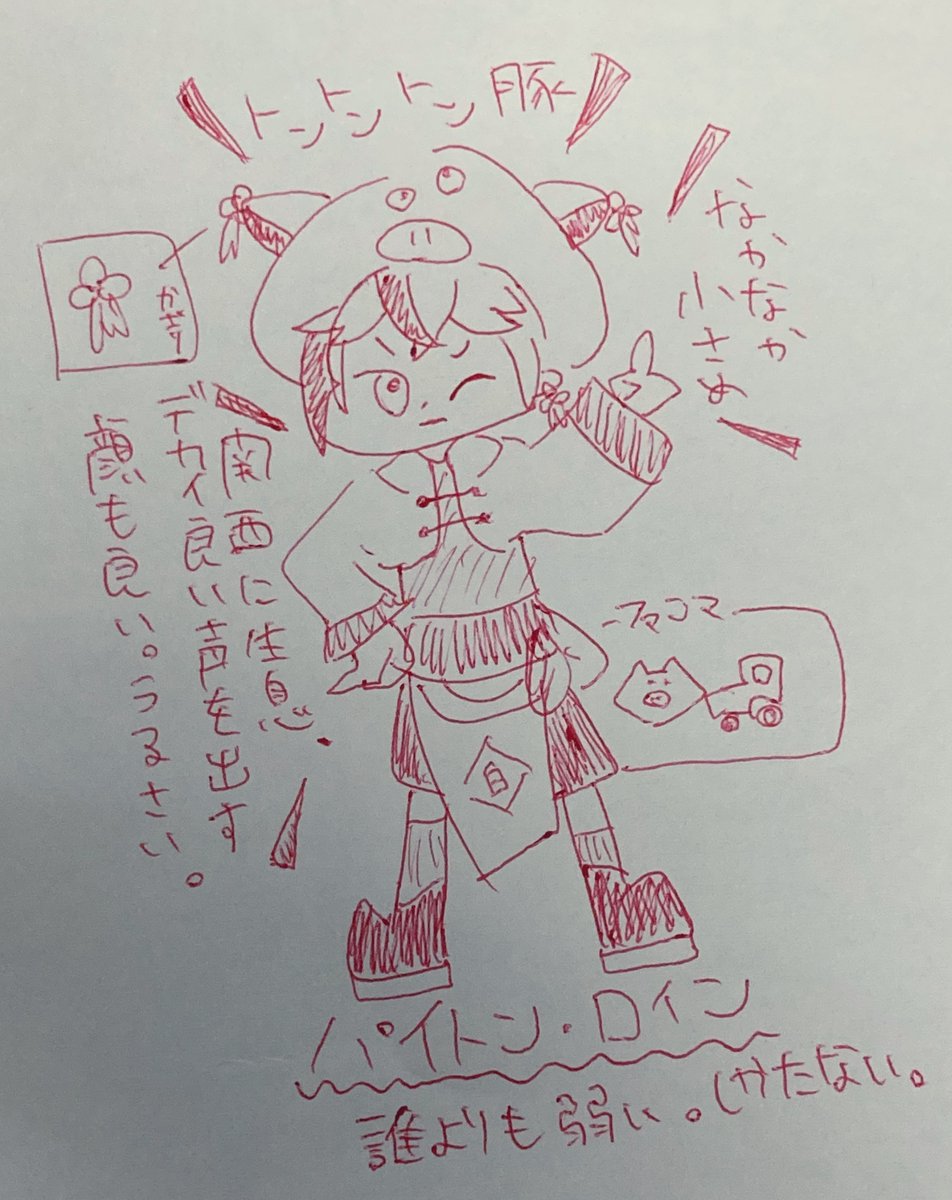 トントントン豚
なかなか
小さめ
かざり
関西に生息.
デカイ良い声を出す。
顔も良い。うるさい。
ファコマ
パイトン・ロイン
誰よりも弱い。しかたない。